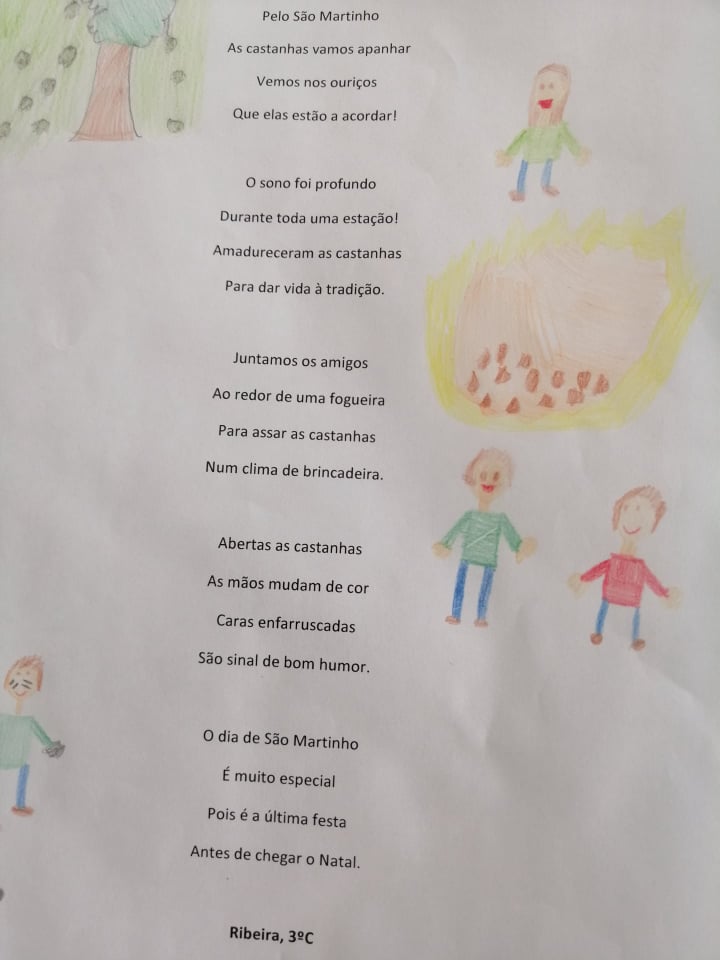 Pelo São Martinho
As castanhas vamos apanhar
Vemos nos ouriços
Que elas estão a acordar!
O sono foi profundo
Durante toda uma estação!
Amadureceram as castanhas
Para dar vida à tradição.
Juntamos os amigos
Ao redor de uma fogueira
Para assar as castanhas
Num clima de brincadeira.
Abertas as castanhas
As mãos mudam de cor
Caras enfarruscadas
São sinal de bom humor.
O dia de São Martinho
É muito especial
Pois é a última festa
Antes de chegar o Natal.
Ribeira, 3ºC